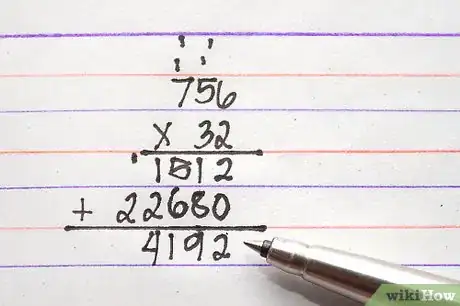 756
x 32
1512
+ 22680
4192
wikiHow